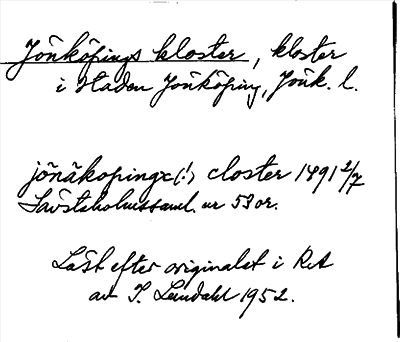 Jönköpings kloster, kloster
i staden Jönköping, Jönk. l.
jönäkopingx (!) closter 1491 2/7
Sävstaholmssaml. nr 53 or.
Läst efter originalet i RA
av I. Lundahl 1952.